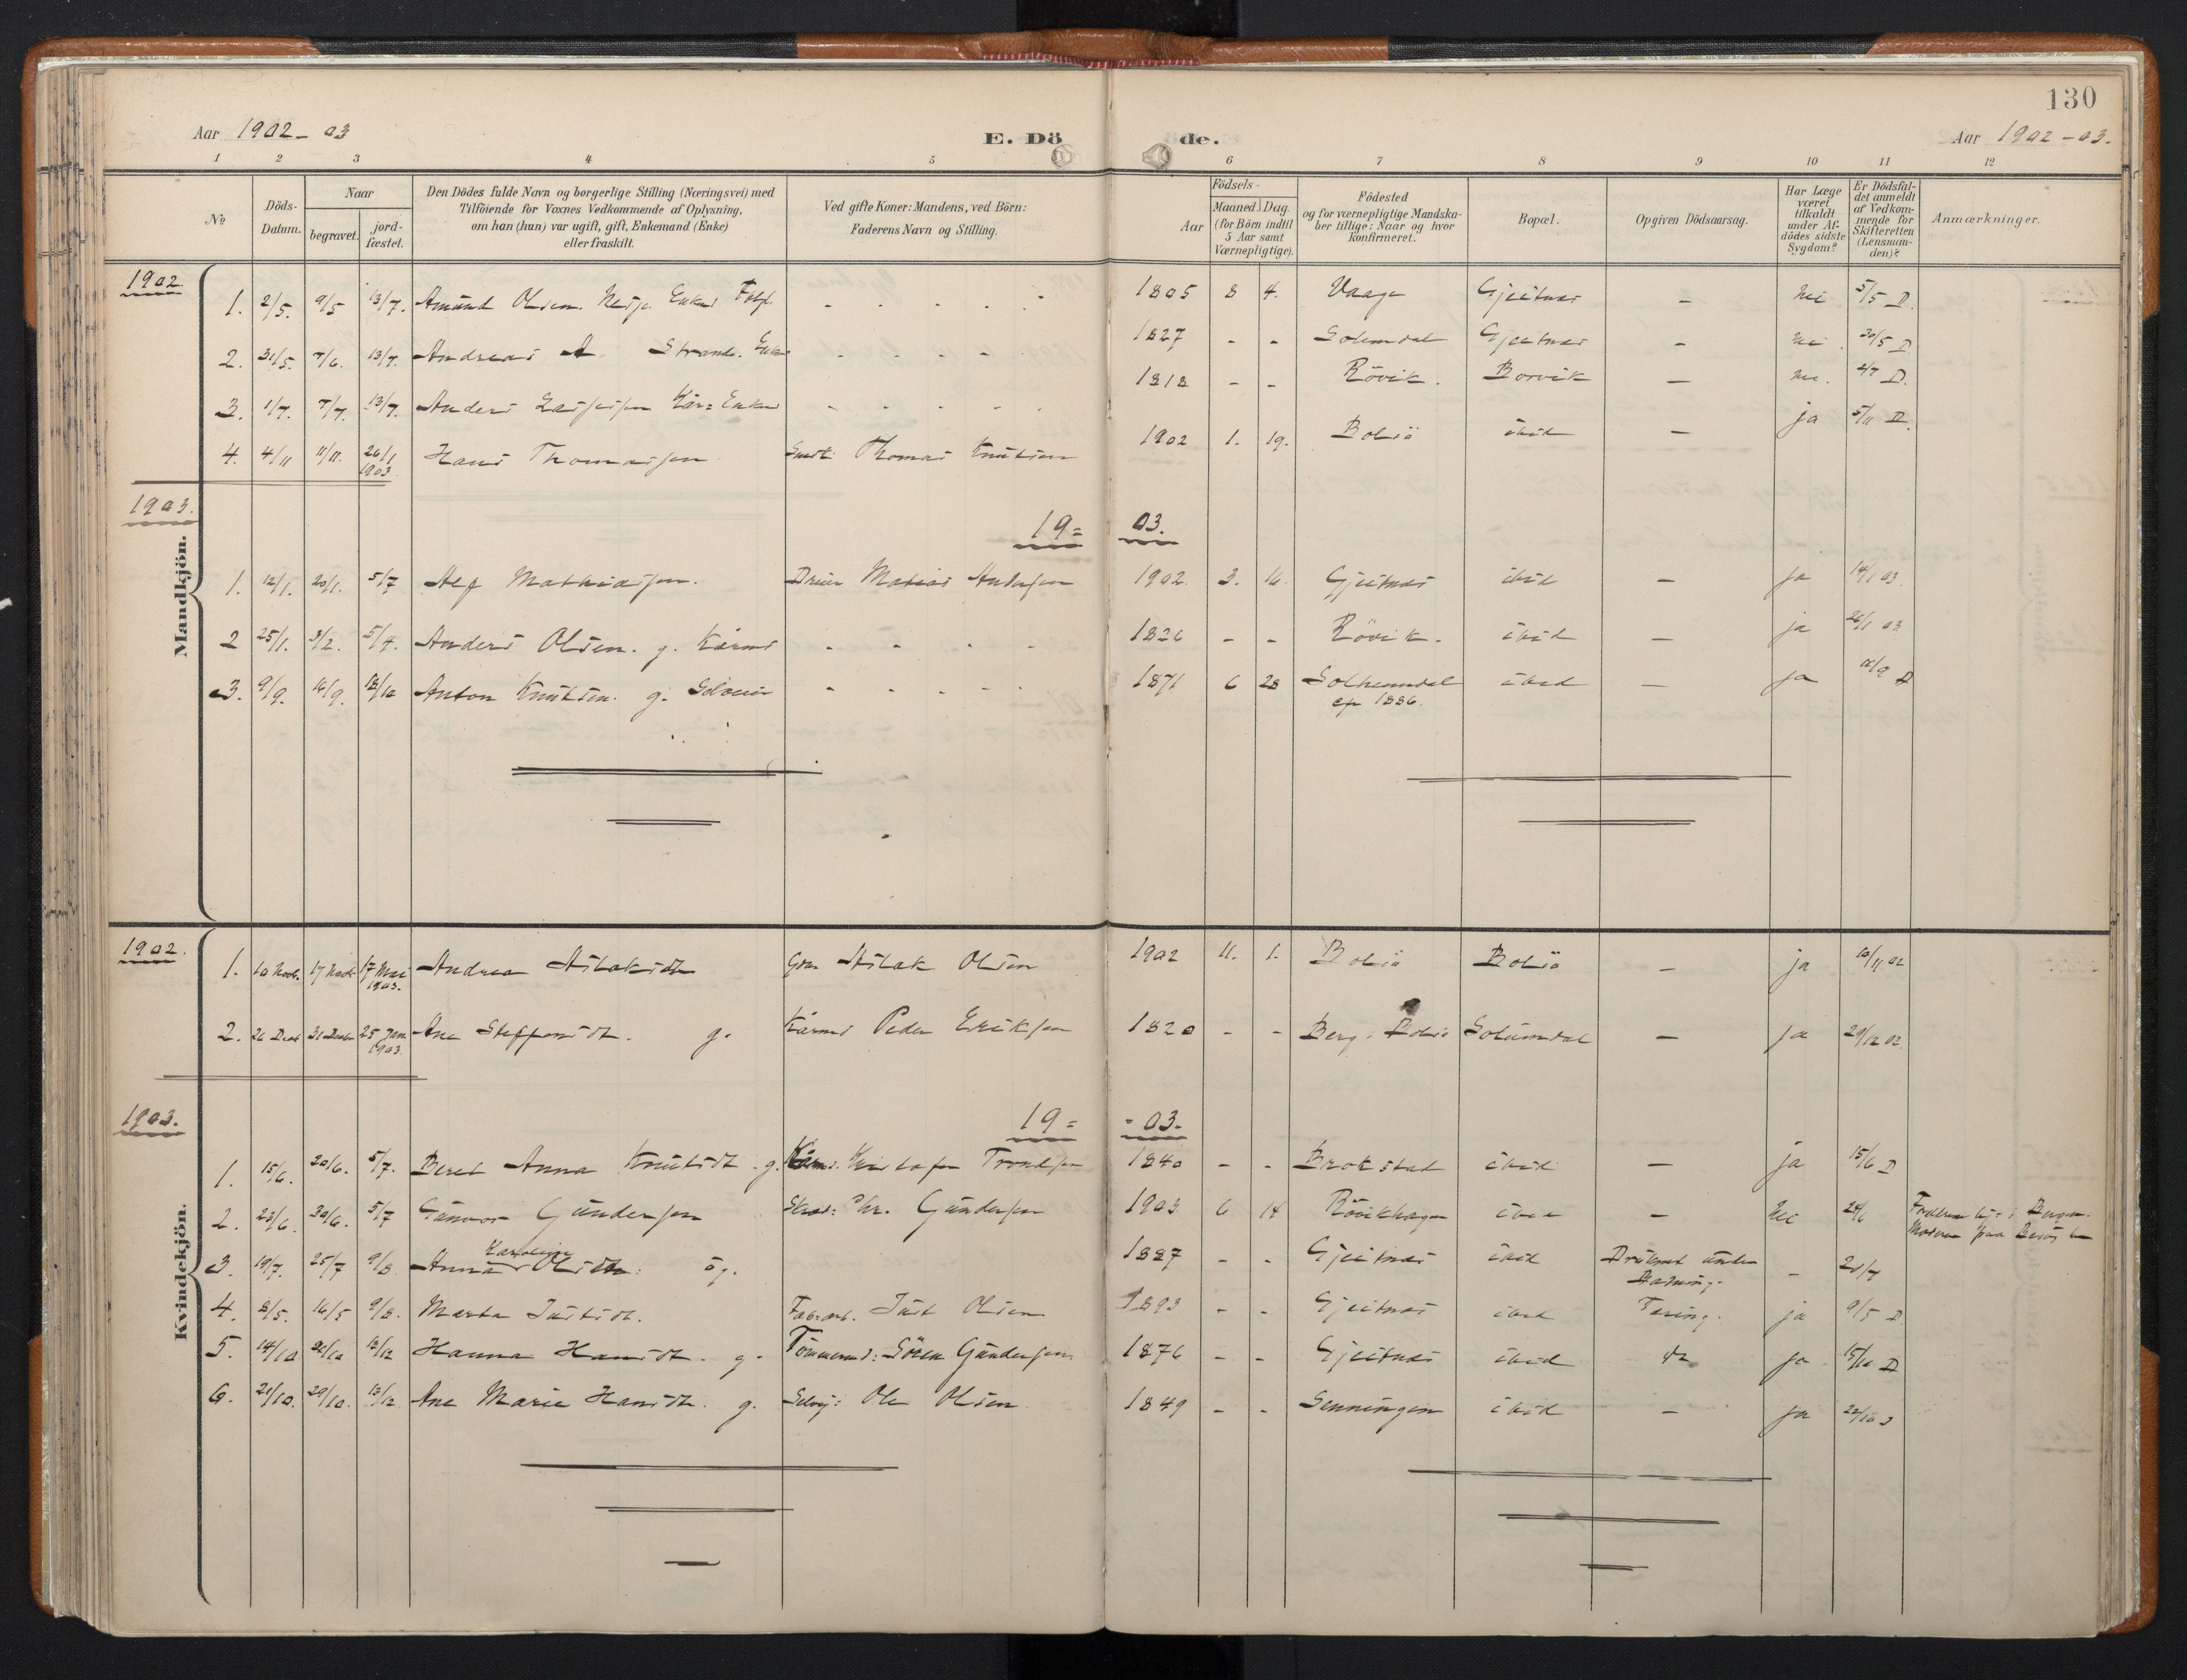 130
Aar 1902-03
E. Dö
de.
Aar 1902-03.
1 2 3 4 5 6 7 8 9 10 11 12
No
Döds-Datum.
Naar
begravet.
jord-fæstet.
Den Dödes fulde Navn og borgerlige Stilling (Næringsvei) med
Tilföiende for Voxnes Vedkommende af Oplysning,
om han (hun) var ugift, gift, Enkemand (Enke)
eller fraskilt.
Ved gifte Koner: Mandens, ved Börn:
Faderens Navn og Stilling.
Födsels-
Aar
Maaned. Dag.
(for Börn indtil
5 Aar samt
Værnepligtige).
Födested
og for værnepligtige Mandska-
ber tillige: Naar og hvor
konfirmeret.
Bopæl.
Opgiven Dödsaarsag.
Har Læge
været
tilkaldt
under Af-
dödes sidste
Sygdom?
Er Dödsfal-
det anmeldt
af Vedkom-
mende for
Skifteretten
(Lensman-
den)?
Anmærkninger.
Mandkjön.
1902.
1. 2/5. 9/5 13/7. Amund Olsen - - - - - 1805 8 4. Vaage Gjeitnes - nei 5/5 D.
2. 31/5. 7/6. 13/7. Andreas A. Strande. - - - - 1827 - - Solemdal Gjeitnes - nei 30/5 D
3. 1/7. 7/7. 13/7. Anders - - - - - 1818 - - Rövik. Borvik - nei. 2/7 D.
4. 4/11 11/11. 26/1 1903 Hans Thomassen Thomas Knutsen 1902 1. 19. Bolsö ibid - ja 5/11 D.
1903.
19= 03.
1. 12/1. 20/1. 5/7 Alf Mathiassen. Matias Andersen 1902. 3. 16. Gjeitnes ibid - ja 14/1 03.
2 25/1. 3/2. 5/4. Anders Olsen. g. Kårmd - - - - 1826 - - Rövik. ibid - ja 26/1 03.
3. 9/9. 16/9. 18/10 Anton Knutsen. g. - - - - - 1871 6 28 Solhemdal ibid - ja 10/9 D
1886.
Kvindekjön.
1902.
1. 10 Novb. 17 Novbr 17 Mai 1903. Andrea Aslaksdtr Aslak Olsen 1902 11. 1. Bolsö Bolsö - ja 10/11 02
2. 26 Decb 31 Decbr 25 Jan 1903. Ane Steffensdtr. g. Kårmd Peder Eriksen 1820 - - Berg i Bolsö Solumdal - ja 29/12 02.
1903.
19= -03-
1. 15/6. 20/6. 5/7. Beret Anna Knutsdtr. g. Kårmd. Kristofer Trondsen 1840 - - Brokstad ibid - ja 15/6 D
2. 23/6. 30/6. 5/7 Gunvor Gundersen Chr. Gundersen 1903 6 14 Rövikhagen ibid - Nei 24/6
3. 19/7. 25/7 9/8 Anna Karoline Olsdtr: ug. 1887 - - Gjeitnes ibid Druknet under Badning. - 20/7
4. 8/5. 16/5 9/8. Marta Justsdtr. Fabr.arb. Just Olsen 1893 - - Gjeitnes ibid Tæring. ja 9/5 D.
5. 14/10 21/10 13/12 Hanna Hansdtr. g. Tömmermd: Sören Gundersen. 1876 - - Gjeitnes ibid do ja 15/10 D
6. 21/10. 29/10. 13/12 Ane Marie Hansdtr. g. Selvej: Ole Olsen 1849 - - Senningen ibid - ja 22/10 D